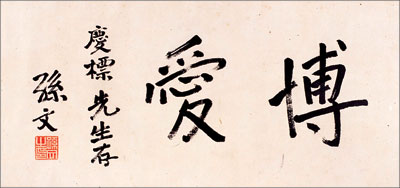 博愛
慶標先生存
孫文